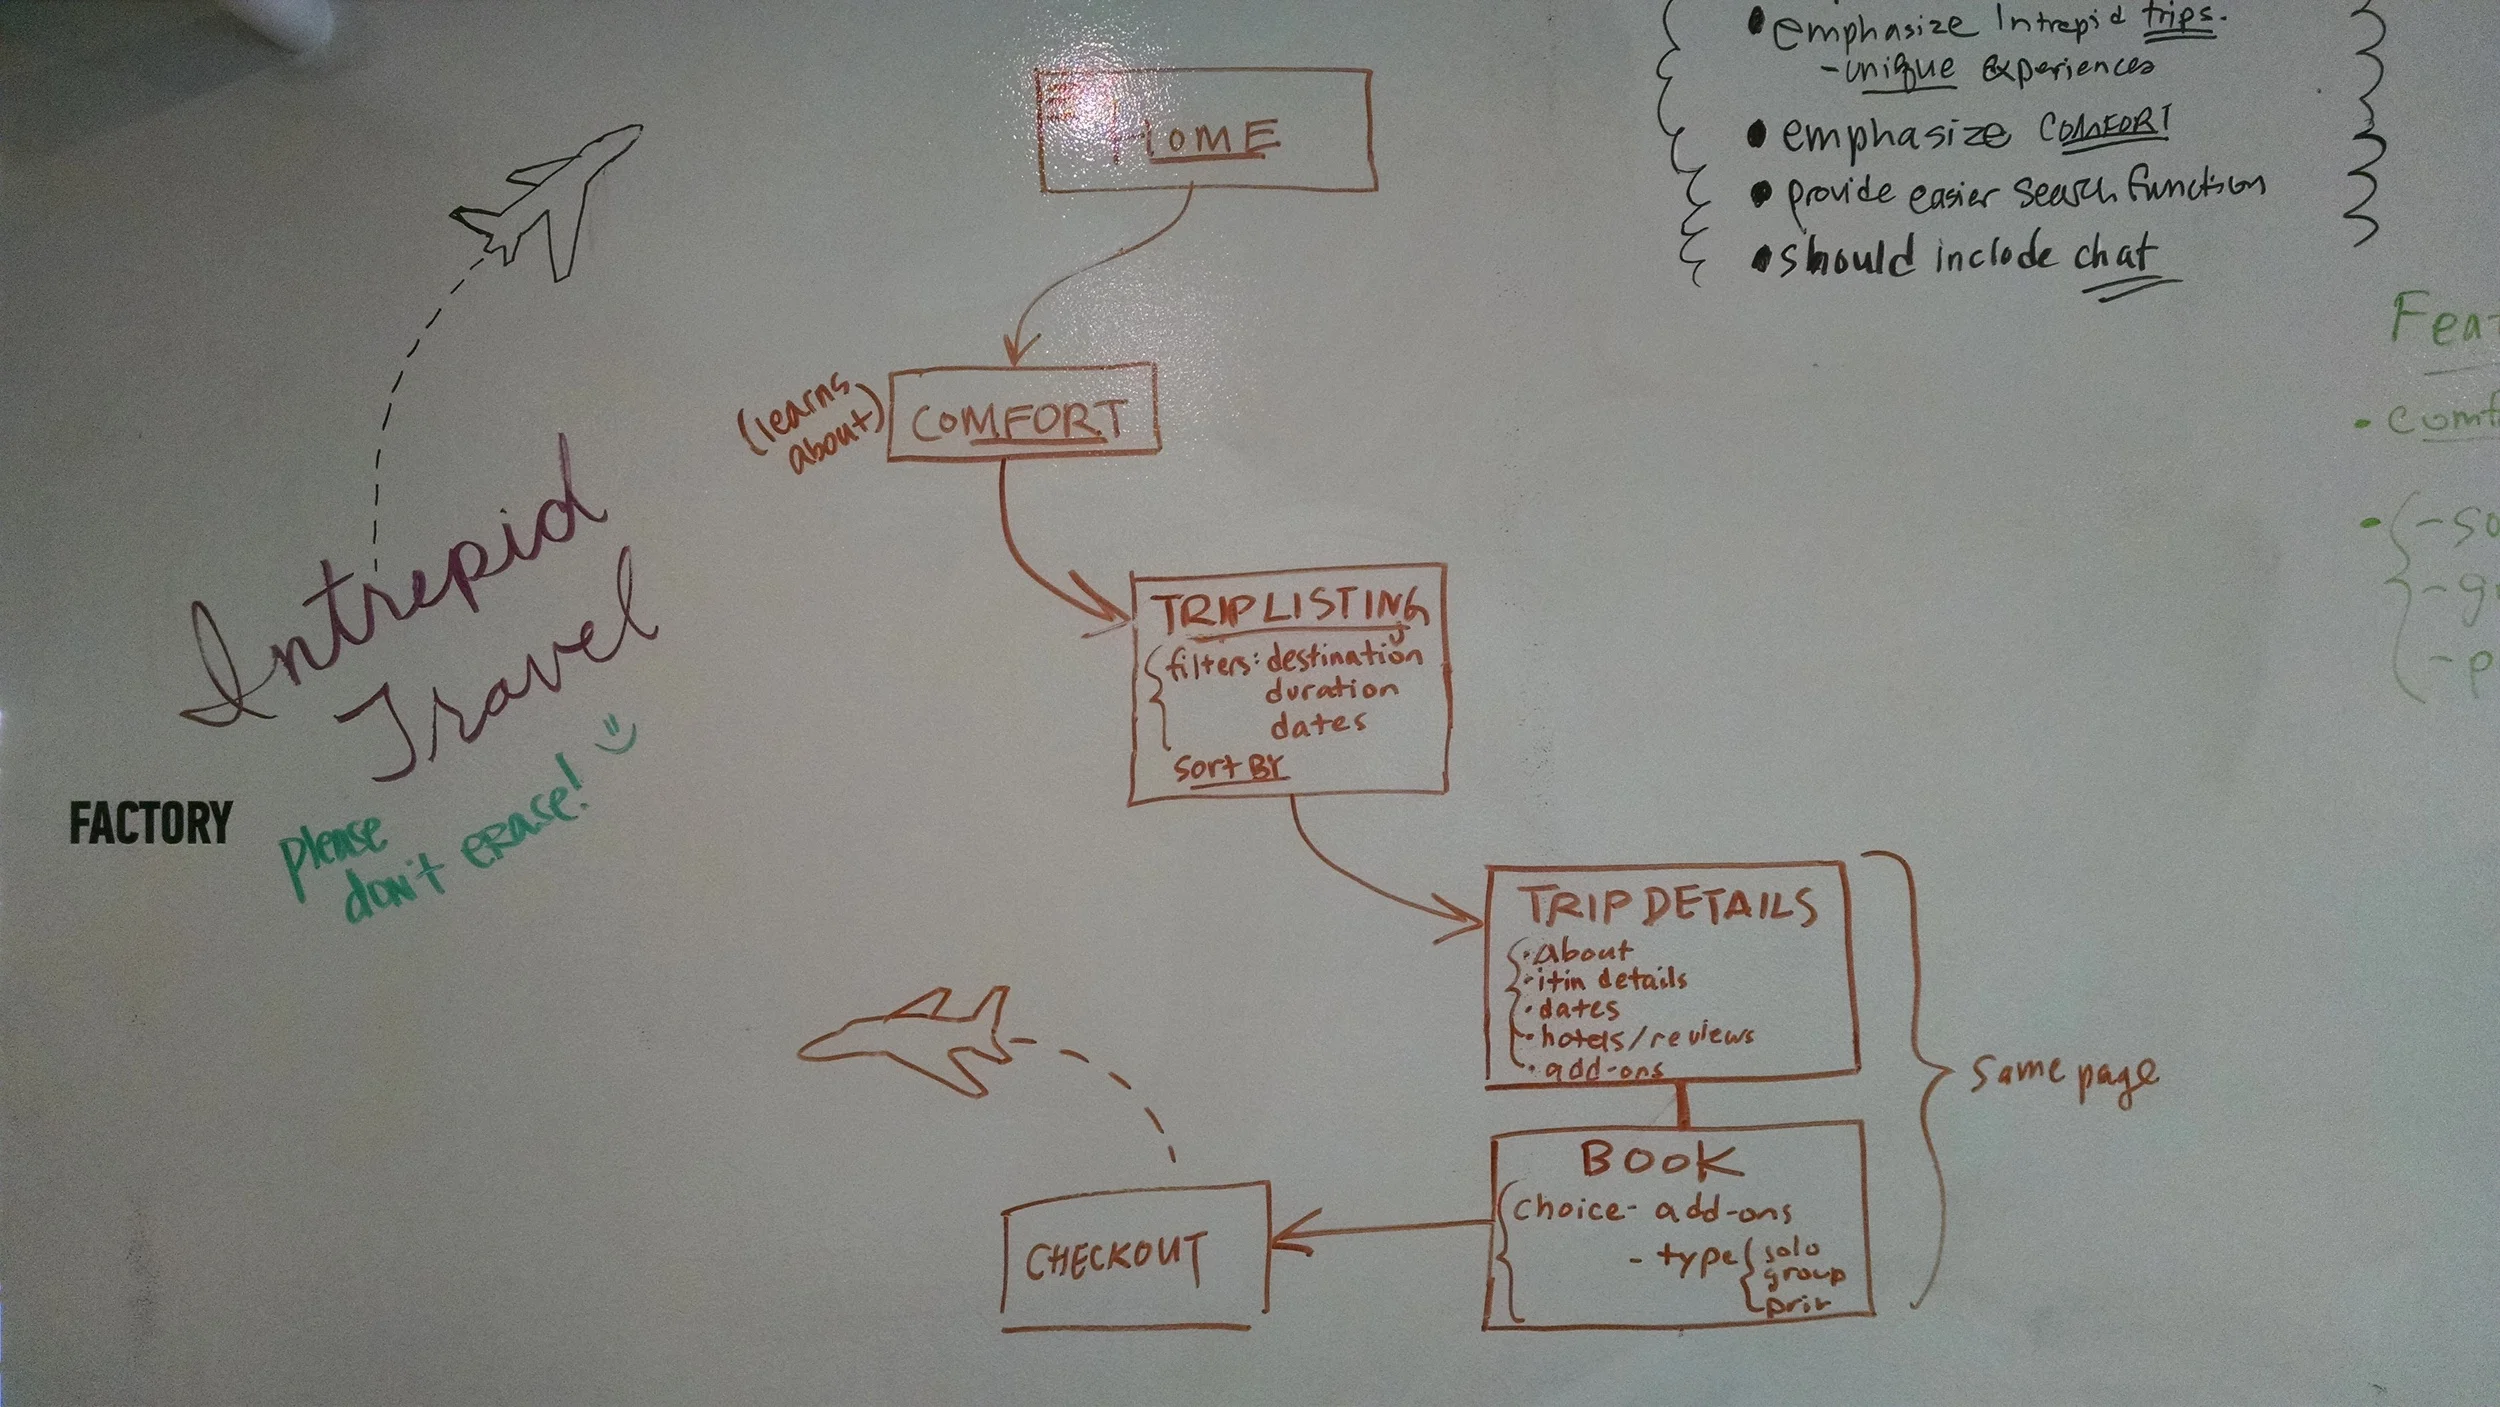 • emphasize Intrepid trips.
- unique experiences
• emphasize COMFORT
• provide easier search function
• should include chat
HOME
(learns
about)
COMFORT
TRIP LISTING
filters: destination
duration
dates
Sort BY
TRIP DETAILS
• About
• itin details
• dates
• hotels/reviews
• add-ons
Same page
BOOK
Choice - add-ons
- type solo
group
priv
CHECKOUT
Intrepid
Travel
please
don't erase!
FACTORY